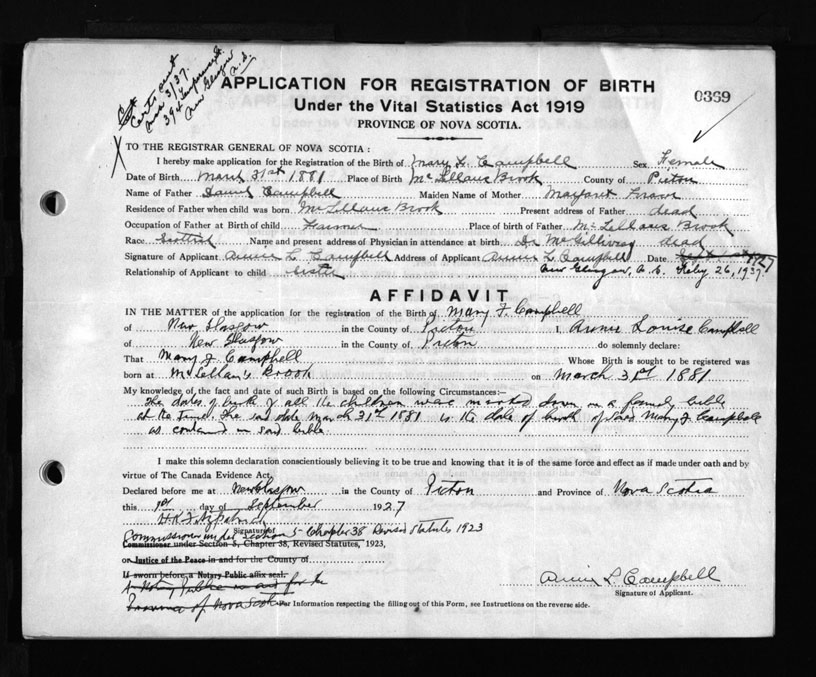 Certs out
Aug 3/37.
New Glasgow
N.S.
APPLICATION FOR REGISTRATION OF BIRTH
0369
Under the Vital Statistics Act 1919
PROVINCE OF NOVA SCOTIA.
TO THE REGISTRAR GENERAL OF NOVA SCOTIA:
I hereby make application for the Registration of the Birth of Mary F. Campbell Sex Female
Date of Birth March 31st 1881 Place of Birth McLellans Brook County of Pictou
Name of Father Daniel Campbell Maiden Name of Mother Margaret Fraser
Residence of Father when child was born McLellans Brook Present address of Father dead
Occupation of Father at Birth of child Farmer Place of birth of Father McLellans Brook
Race Scottish Name and present address of Physician in attendance at birth Dr McGillivray dead
Signature of Applicant Annie L. Campbell Address of Applicant Annie L. Campbell Date 1927
Relationship of Applicant to child sister New Glasgow, N.S. Feby 26, 1937
AFFIDAVIT
IN THE MATTER of the application for the registration of the Birth of Mary F. Campbell
of New Glasgow in the County of Pictou I, Annie Louise Campbell
of New Glasgow in the County of Pictou do solemnly declare:
That Mary F Campbell Whose Birth is sought to be registered was
born at McLellan's Brook on March 31st 1881
My knowledge of the fact and date of such Birth is based on the following Circumstances:—
The dates of birth of all the children were marked down in a family bible
at the time. The said date March 31st 1881 is the date of birth of said Mary F Campbell
as contained in said bible.
I make this solemn declaration conscientiously believing it to be true and knowing that it is of the same force and effect as if made under oath and by
virtue of The Canada Evidence Act.
Declared before me at New Glasgow in the County of Pictou and Province of Nova Scotia
this 1st day of September 1927
H.K. Fitzpatrick
Signature of
Commissioner under Section 5 Chapter 38 Revised Statutes, 1923
Commissioner under Section 5, Chapter 38, Revised Statutes, 1923,
or Justice of the Peace in and for the County of
If sworn before a Notary Public affix seal.
A Notary Public in and for the
Province of Nova Scotia
Annie L. Campbell
Signature of Applicant.
For Information respecting the filling out of this Form, see Instructions on the reverse side.